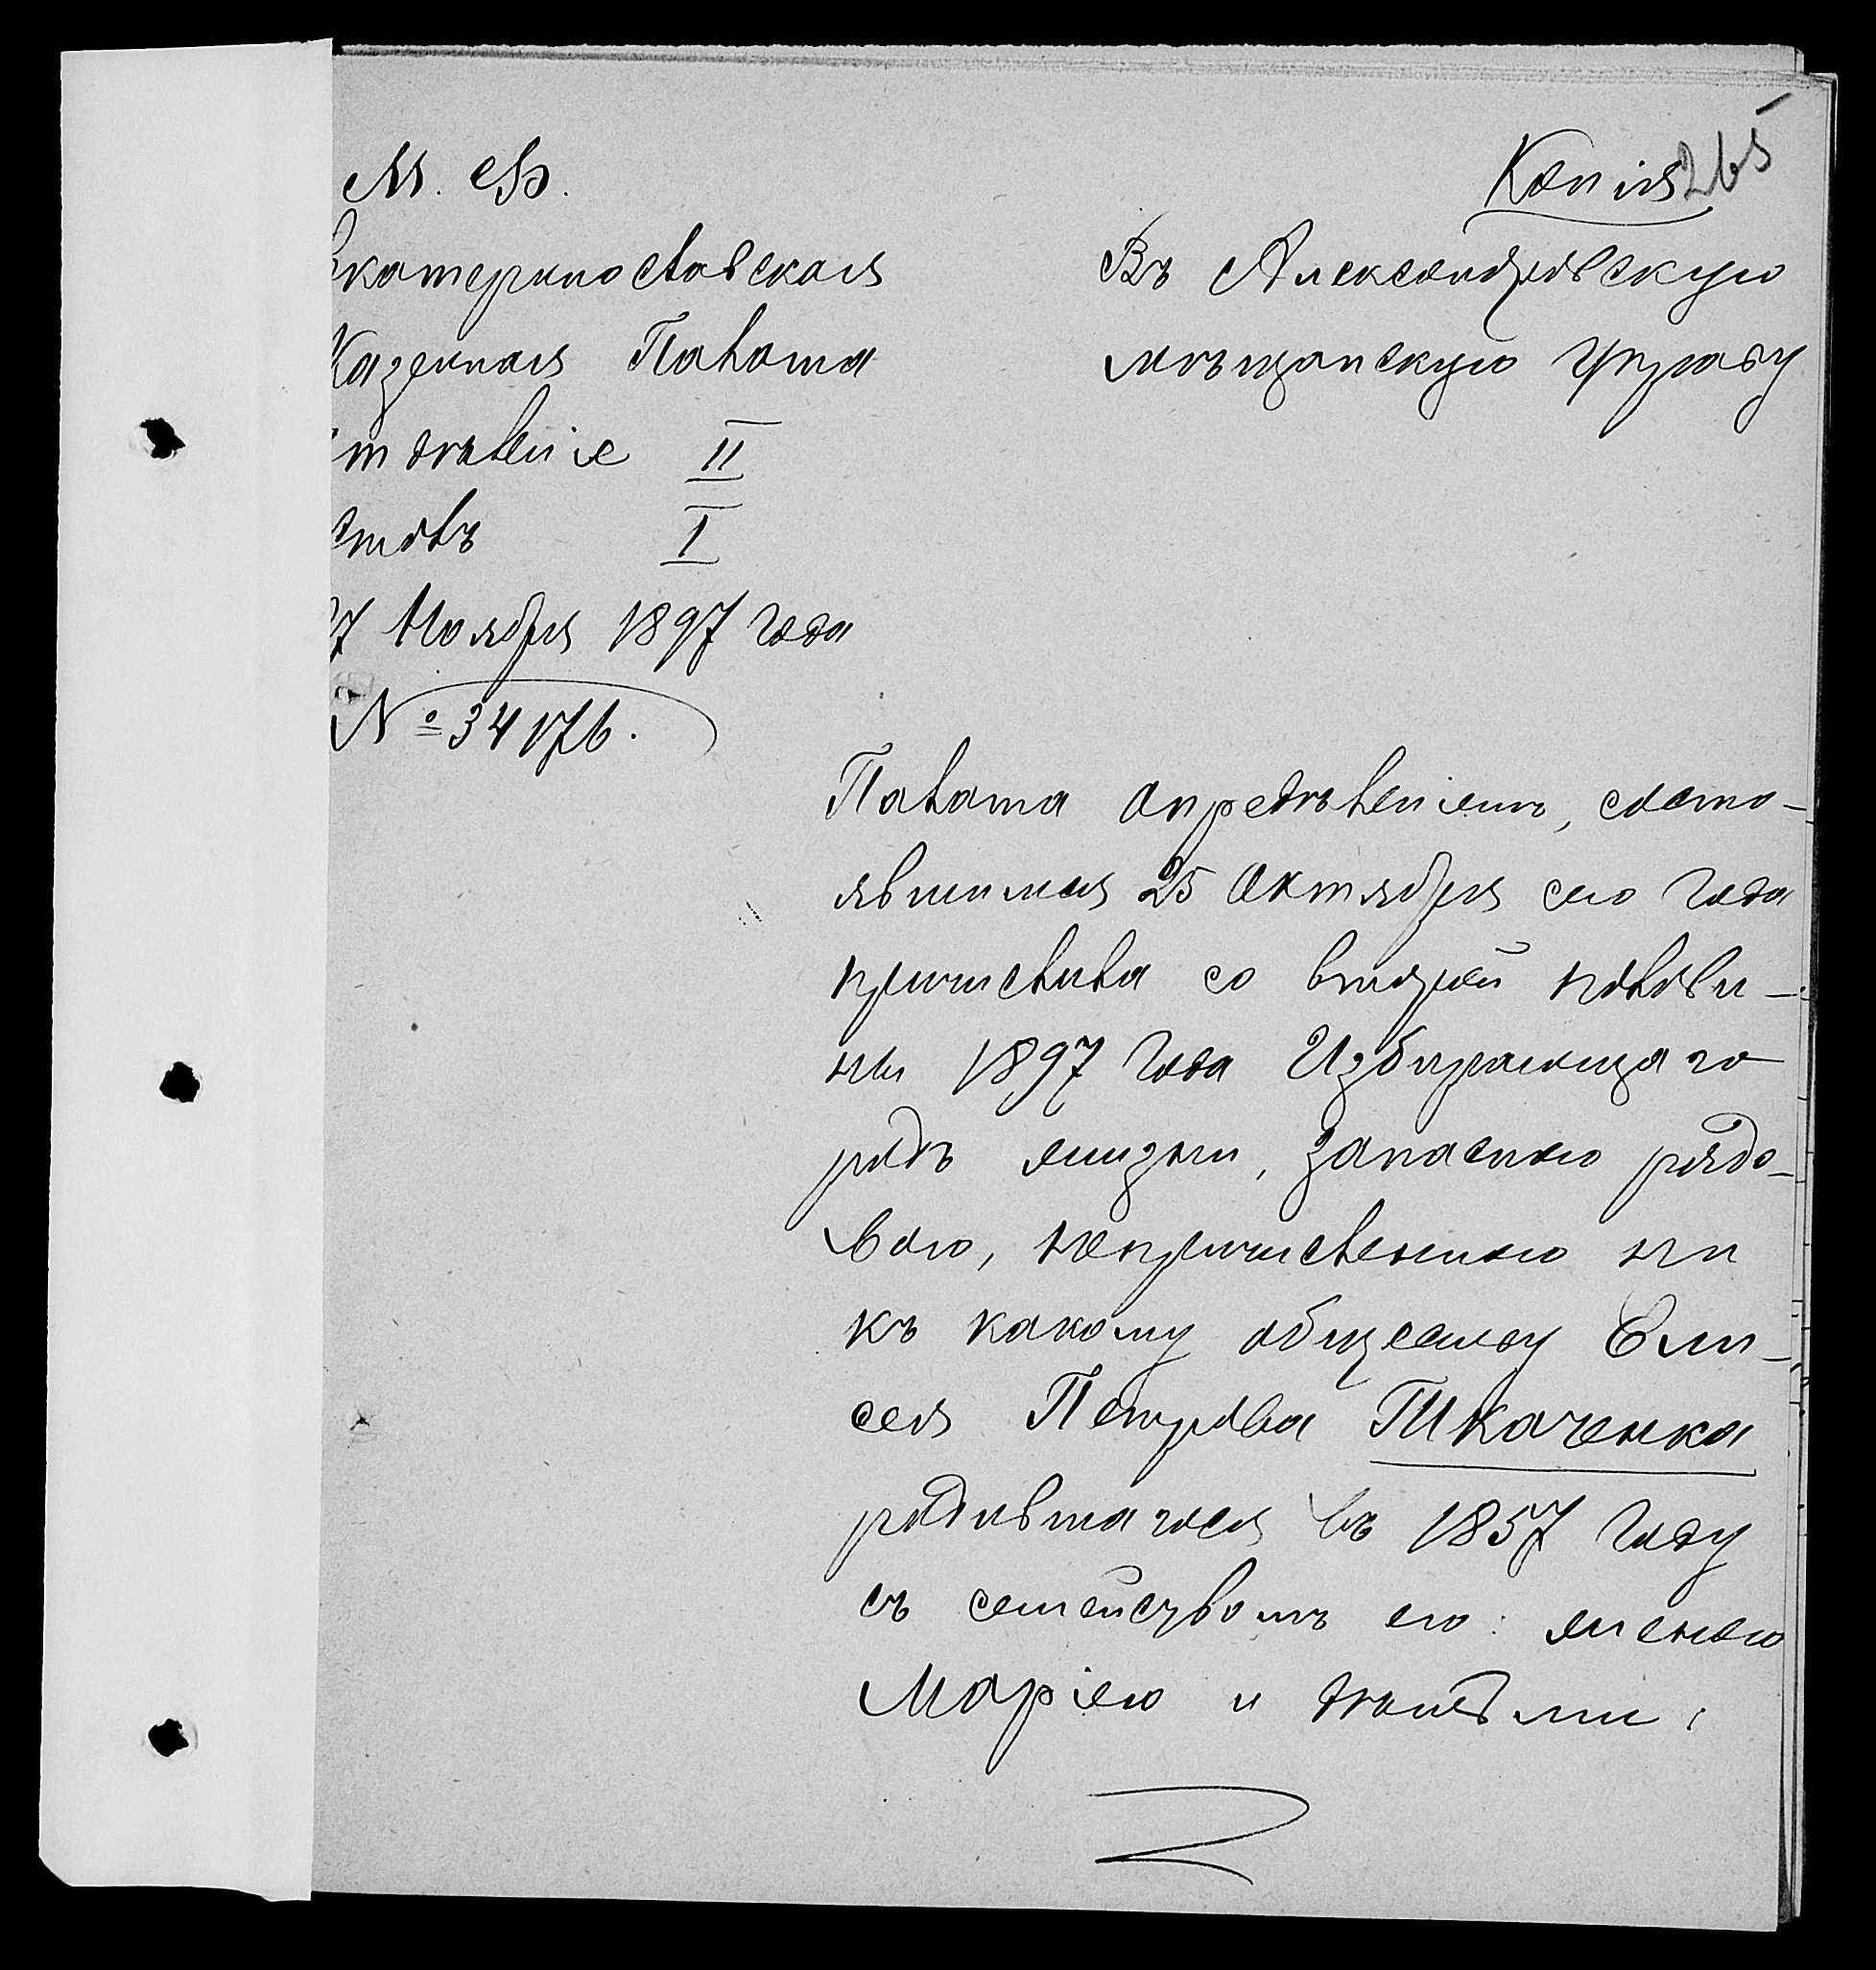 Копія 265
М. Ф.
Екатеринославская
Казенная Палата
Отдѣленіе II
Столъ I
27 Ноября 1897 года
№ 34176.
Въ Александровскую
мѣщанскую управу
Палата опредѣленіемъ, состо-
явшимся 25 Октября сего года
причислила со второй полови-
ны 1897 года Избирающаго
родъ жизни, запасного рядо-
вого, непричисленного ни
къ какому обществу Ели-
сея Петрова Ткаченка
родившагося въ 1857 году
съ семействомъ его: женою
Маріею и дѣтьми: